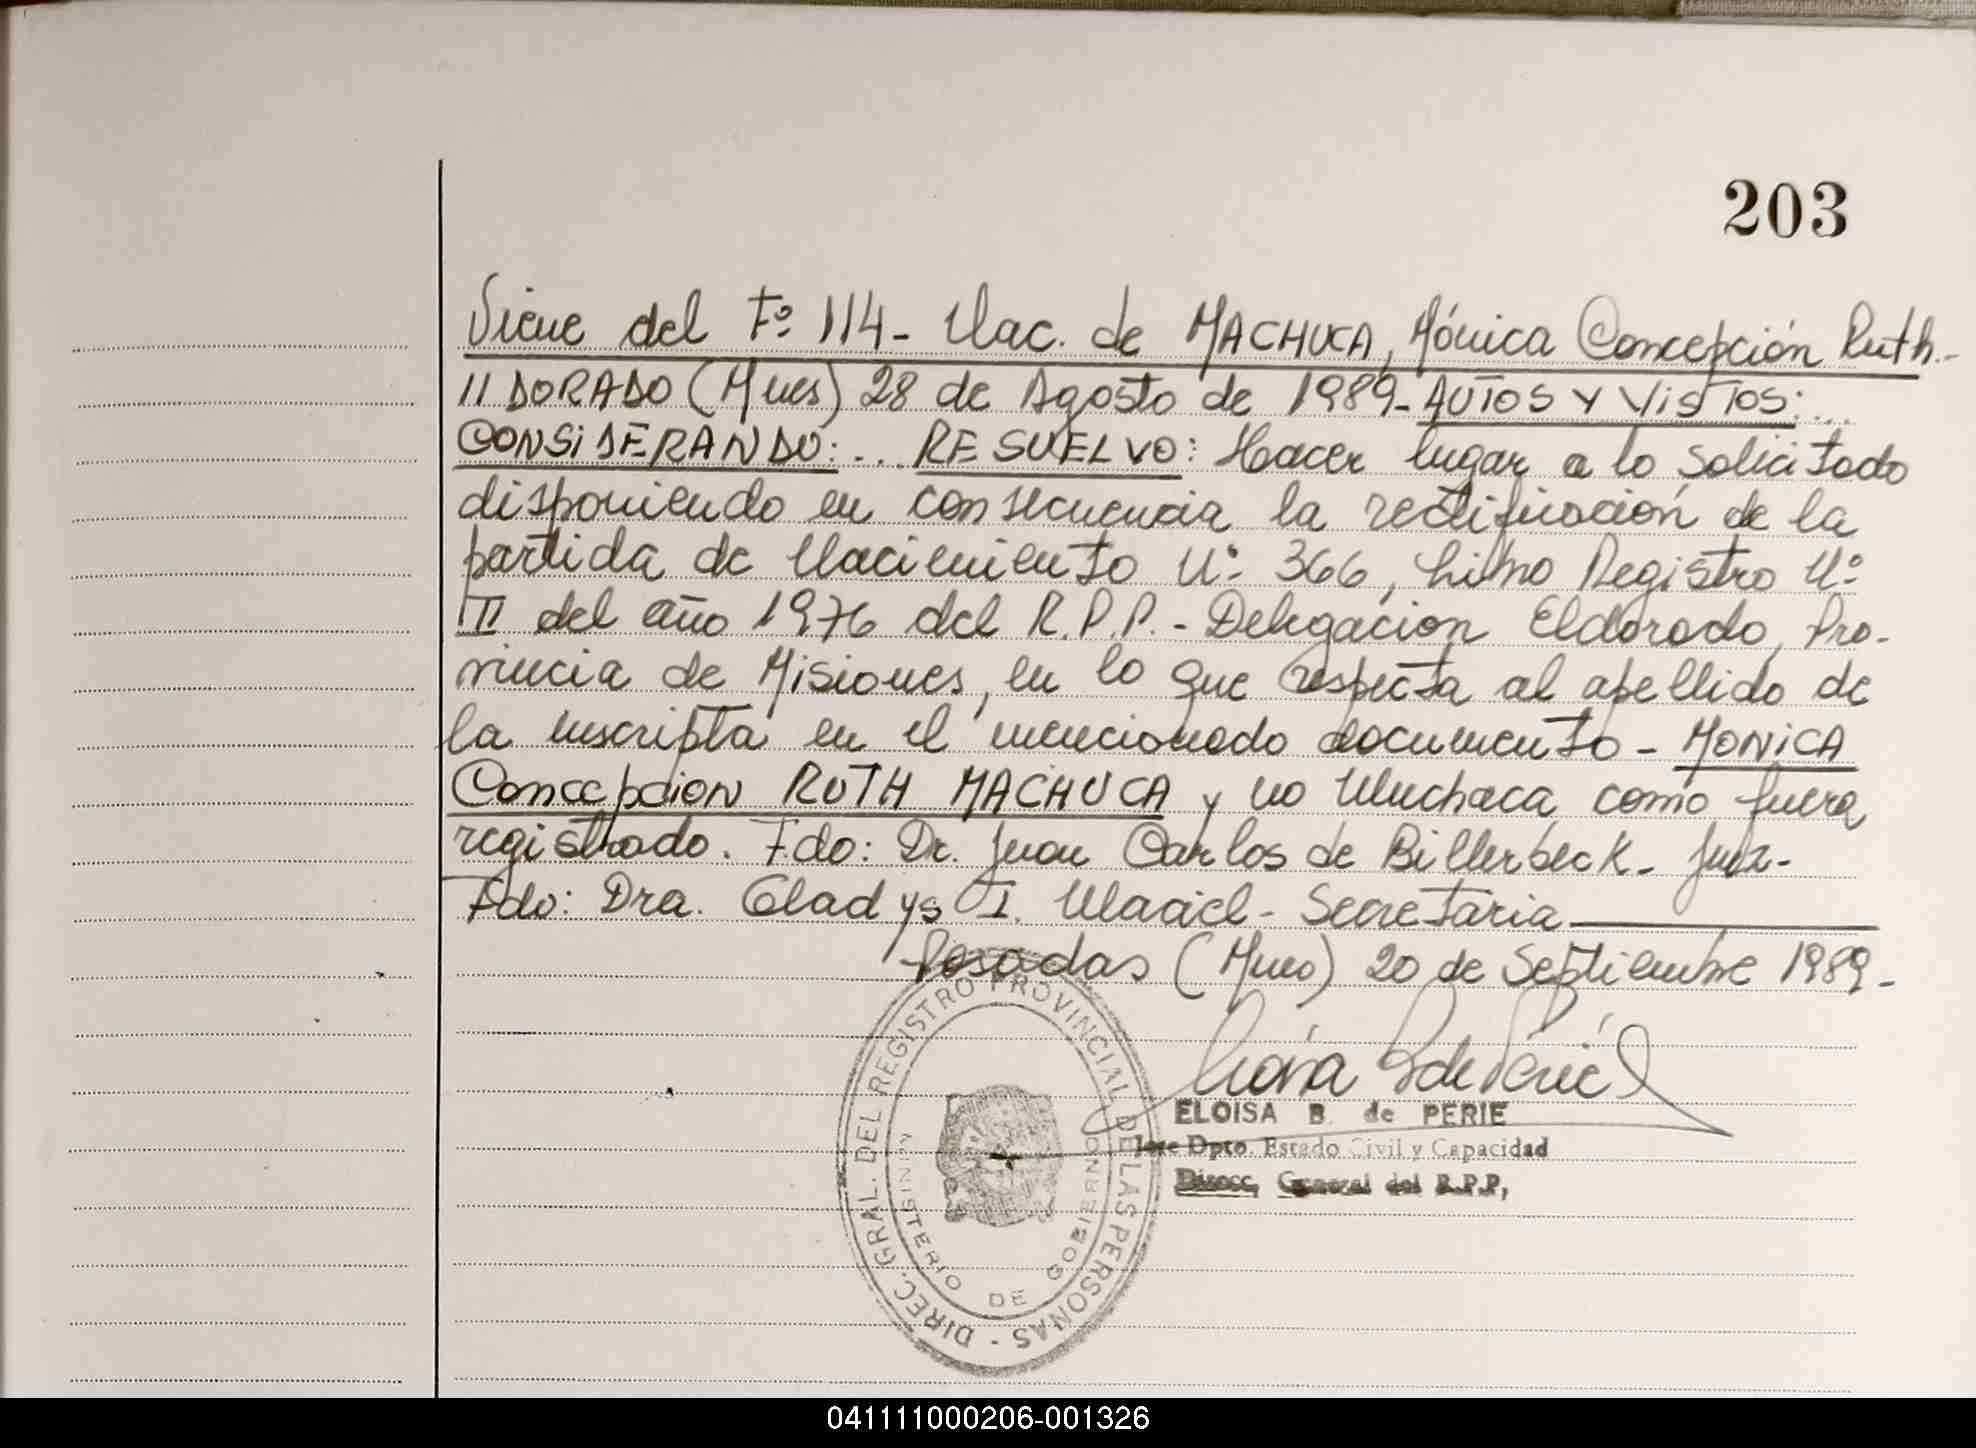 203
Viene del Fº 114- Nac. de MACHUCA, Mónica Concepción Ruth.-
// DORADO (Mnes) 28 de Agosto de 1989- AUTOS Y VISTOS:...
CONSIDERANDO:... RESUELVO: Hacer lugar a lo solicitado
disponiendo en consecuencia la rectificación de la
partida de Nacimiento Nº 366, Libro Registro Nº
II del año 1976 del R.P.P.- Delegación Eldorado, Pro-
vincia de Misiones, en lo que respecta al apellido de
la inscripta en el mencionado documento - MONICA
Concepcion RUTH MACHUCA y no Muchaca como fuera
registrado. Fdo: Dr. Juan Carlos de Billerbeck- Juez-
Fdo: Dra. Gladys I. - Secretaria
Posadas (Mnes) 20 de Septiembre 1989-
ELOISA B. de PERIE
Jefe Dpto. Estado Civil y Capacidad
Direcc. General del R.P.P.
DIREC. GRAL. DEL REGISTRO PROVINCIAL DE LAS PERSONAS -
MINISTERIO DE GOBIERNO
041111000206-001326